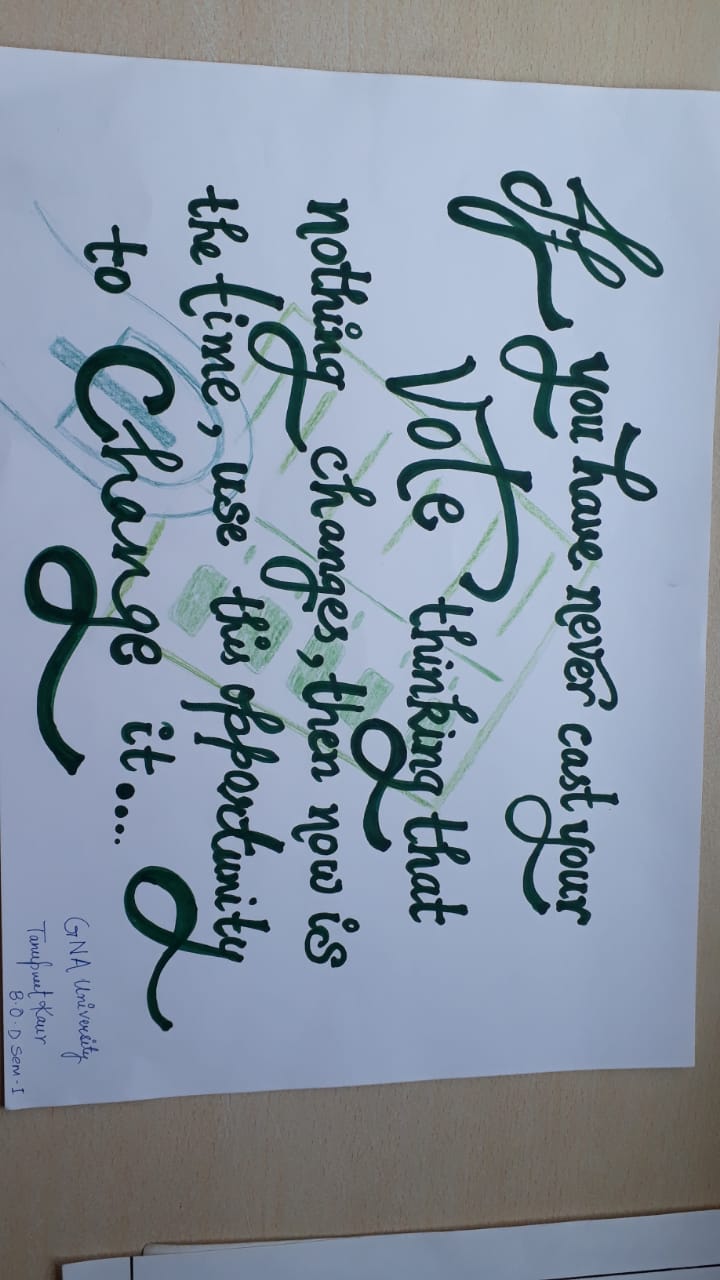 If you have never cast your
Vote thinking that
nothing changes, then now is
the time, use this opportunity
to Change it....
GNA University
Tanupreet Kaur
B.O.D Sem-I